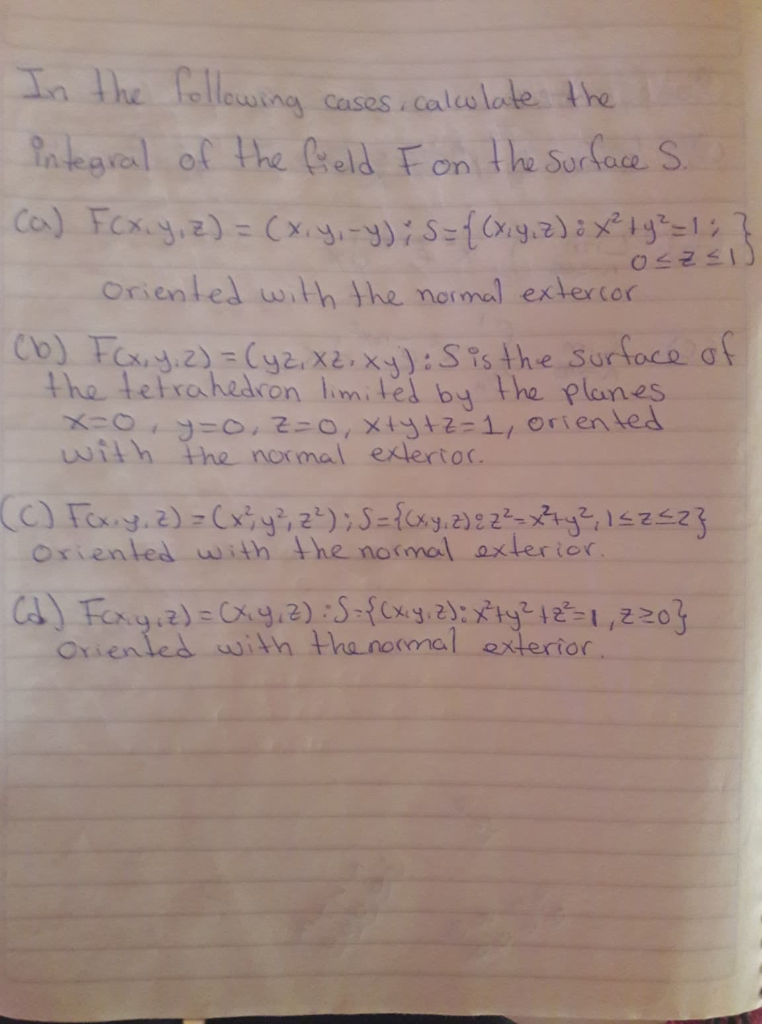 In the following cases, calculate the
integral of the field F on the surface S.
(a) F(x,y,z) = (x,y,-y); S={(x,y,z) : x²+y²=1;
0≤z≤1}
oriented with the normal exterior
(b) F(x,y,z) = (yz, xz, xy): S is the surface of
the tetrahedron limited by the planes
x=0, y=0, z=0, x+y+z=1, oriented
with the normal exterior.
(c) F(x,y,z) = (x²,y²,z²); S={(x,y,z): z²=x²+y², 1≤z≤2}
oriented with the normal exterior.
(d) F(x,y,z) = (x,y,z): S={(x,y,z): x²+y²+z²=1, z≥0}
oriented with the normal exterior.